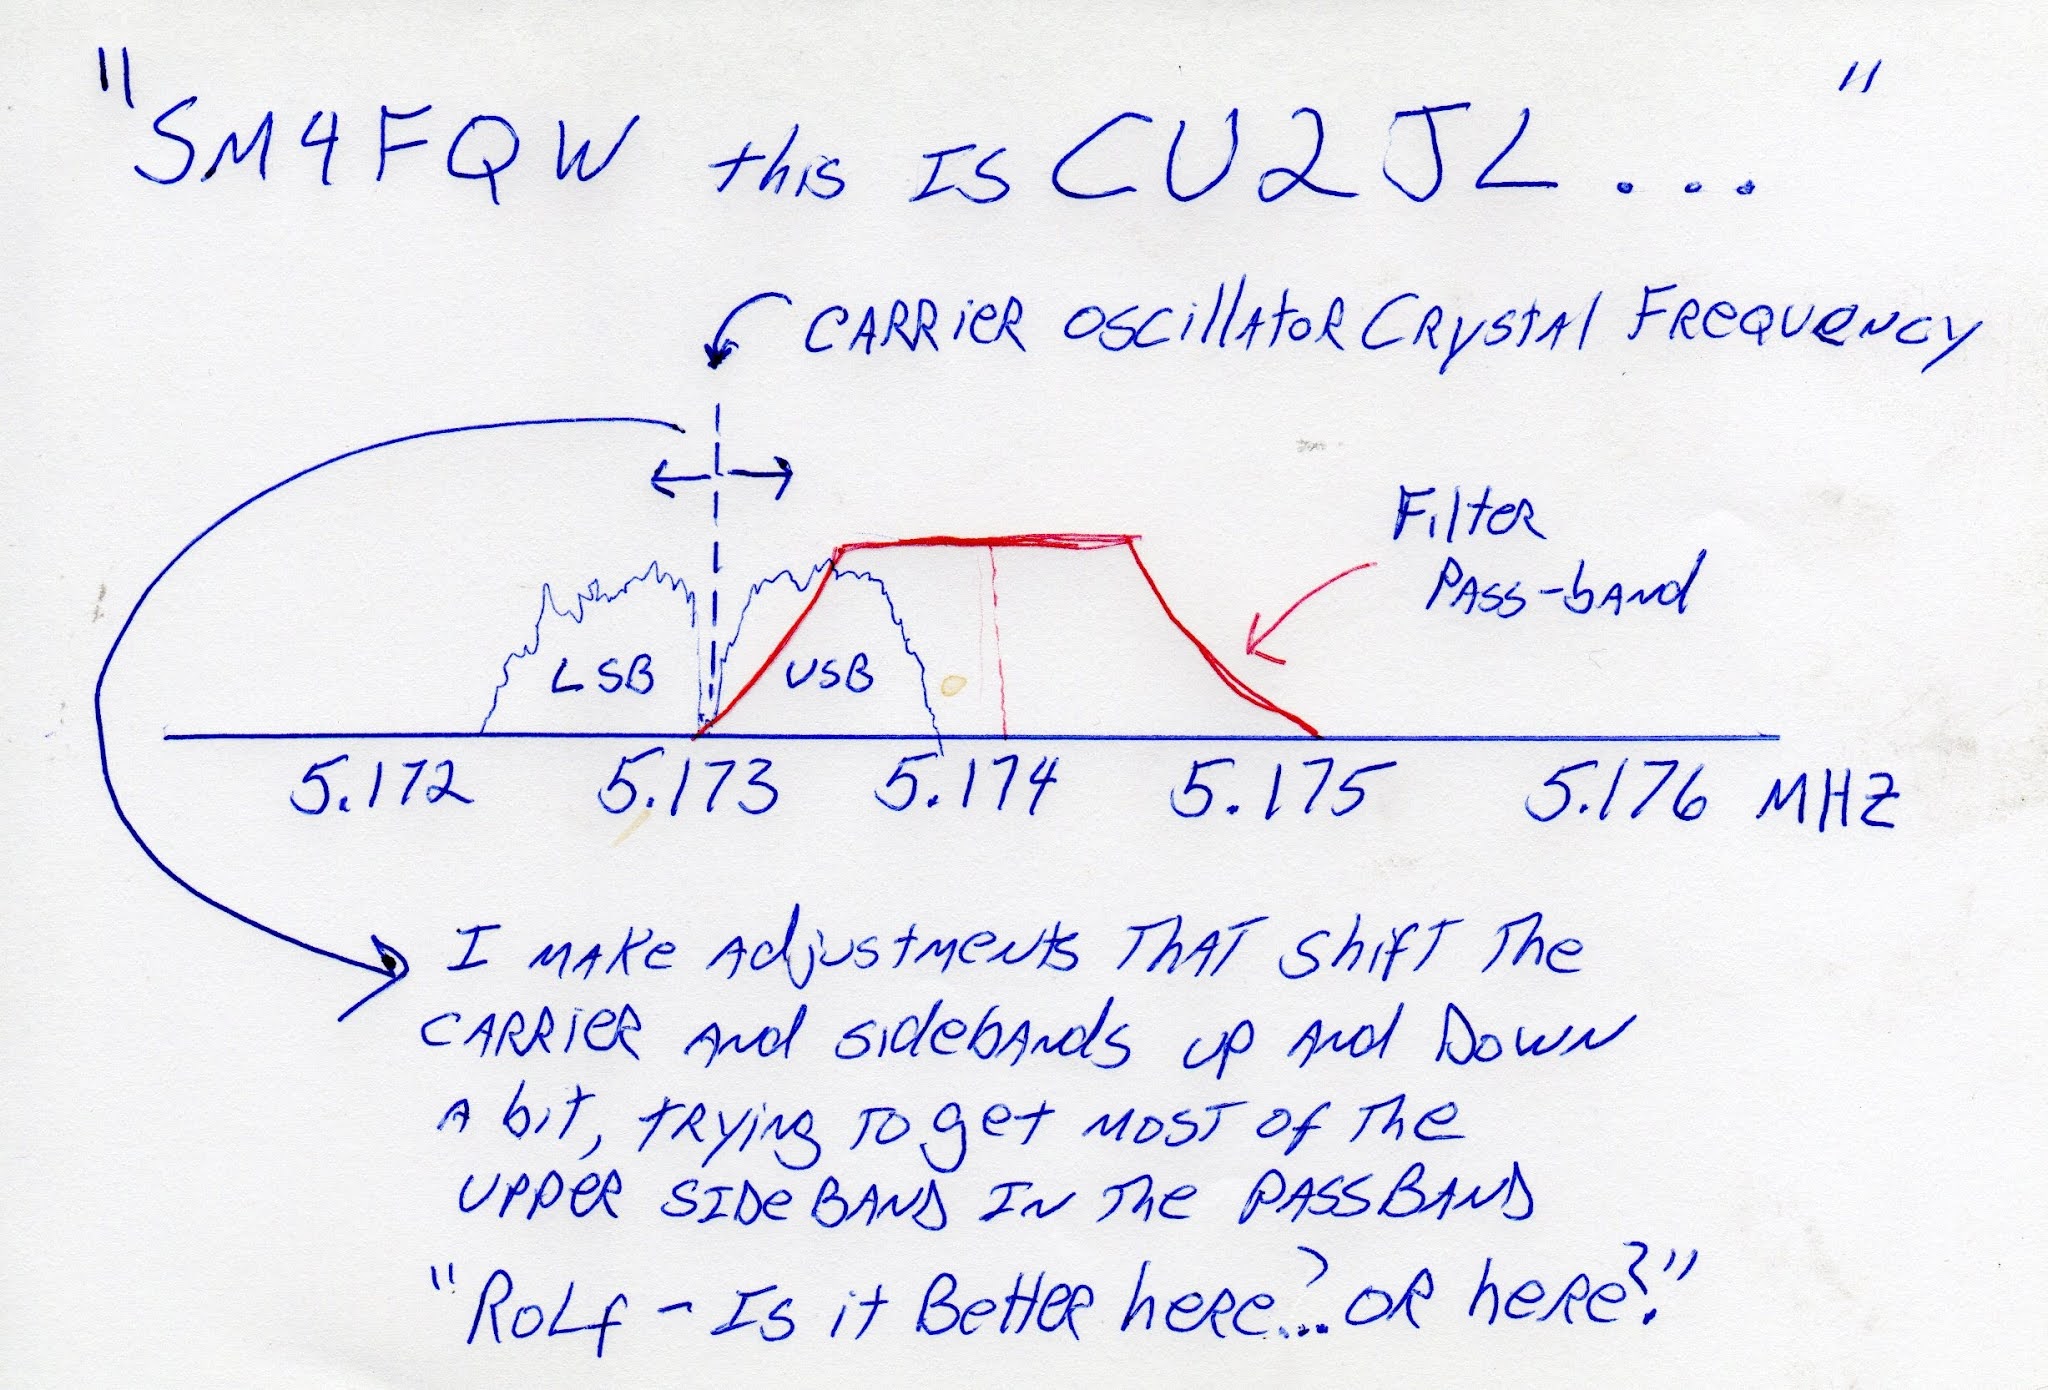 "SM4FQW this IS CU2JL..."
CARRiER OSCillATOR CRystAl FRequency
Filter
PASS-bAnd
LSB USB
5.172 5.173 5.174 5.175 5.176 MHZ
I MAKe Adjustments THAT Shift The
CARRiER And sidebAnds up And Down
A bit, tRying to get most of The
UPPER SIDeBAND IN The PASSBAND
"RoLf - Is it BetteR heRe?... OR heRe?"